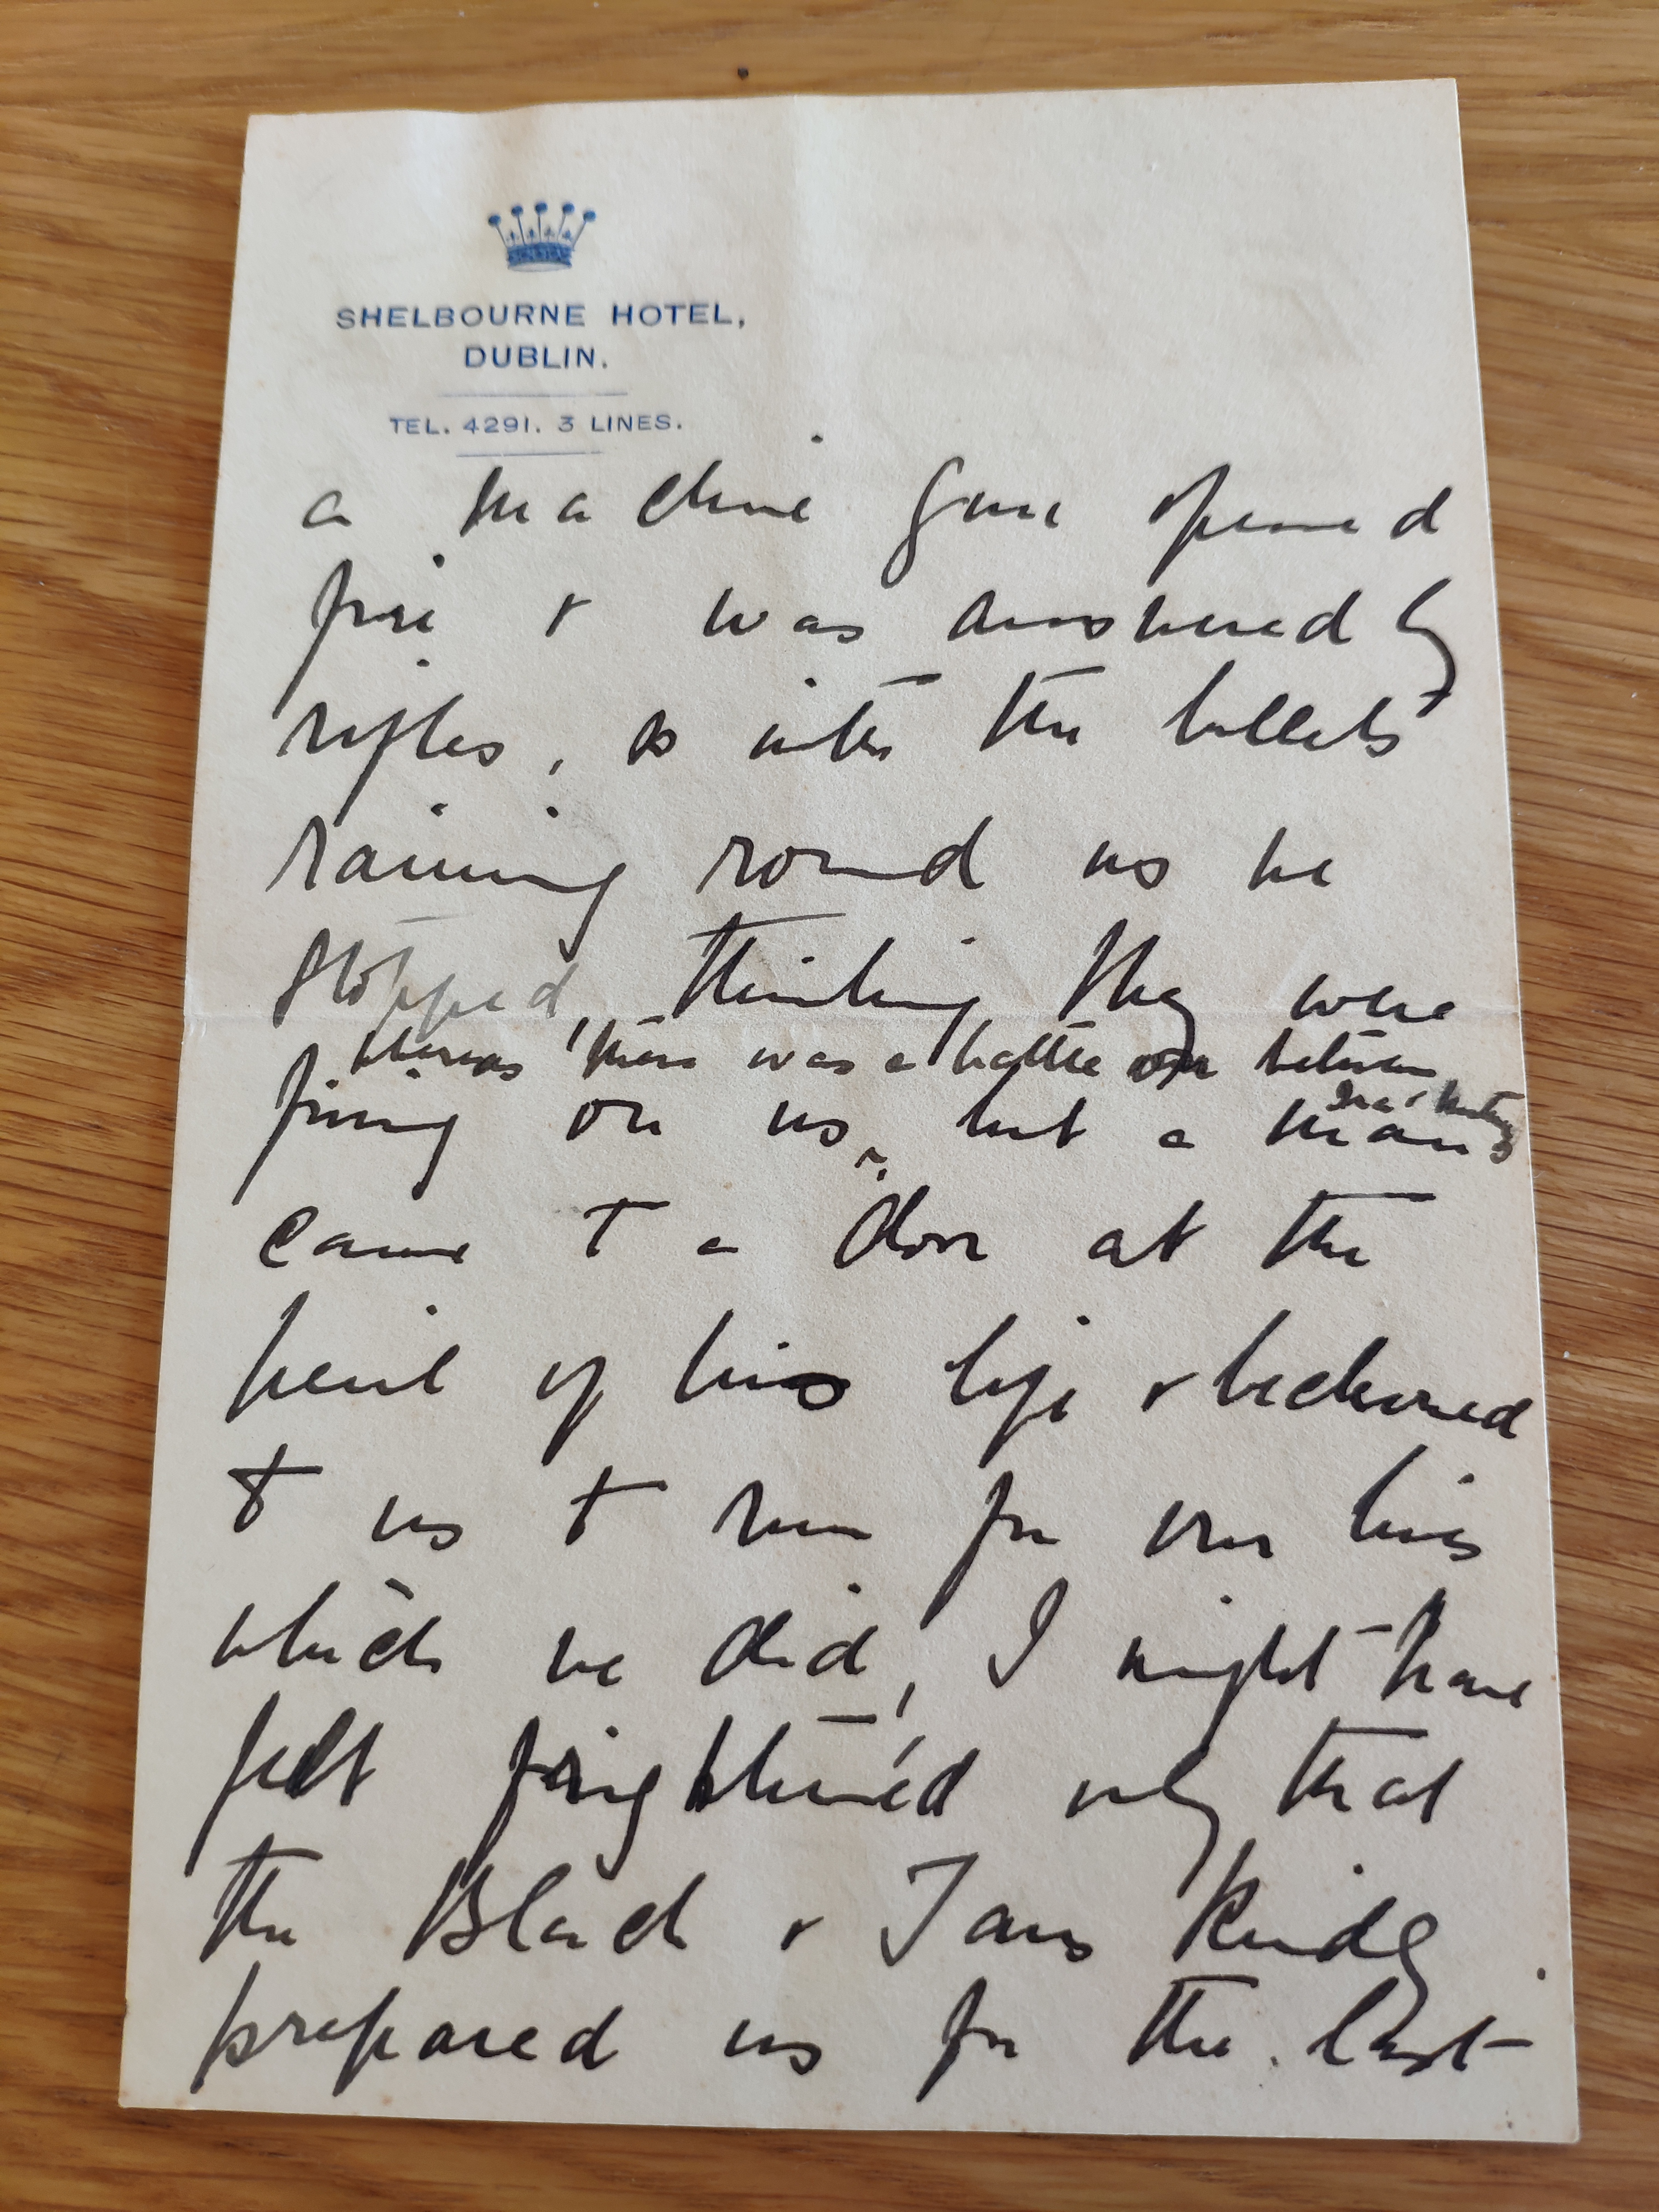 SHELBOURNE HOTEL,
DUBLIN.
TEL. 4291. 3 LINES.
a machine gun opened
fire & was answered by
rifles, so with the bullets
raining round us we
stopped, thinking they were
whereas there was a battle on between
firing on us, but a man
came to a door at the
peril of his life & beckoned
to us to run for our lives
which we did, I might have
felt frightened only that
the Black & Tans kindly
prepared us for the last